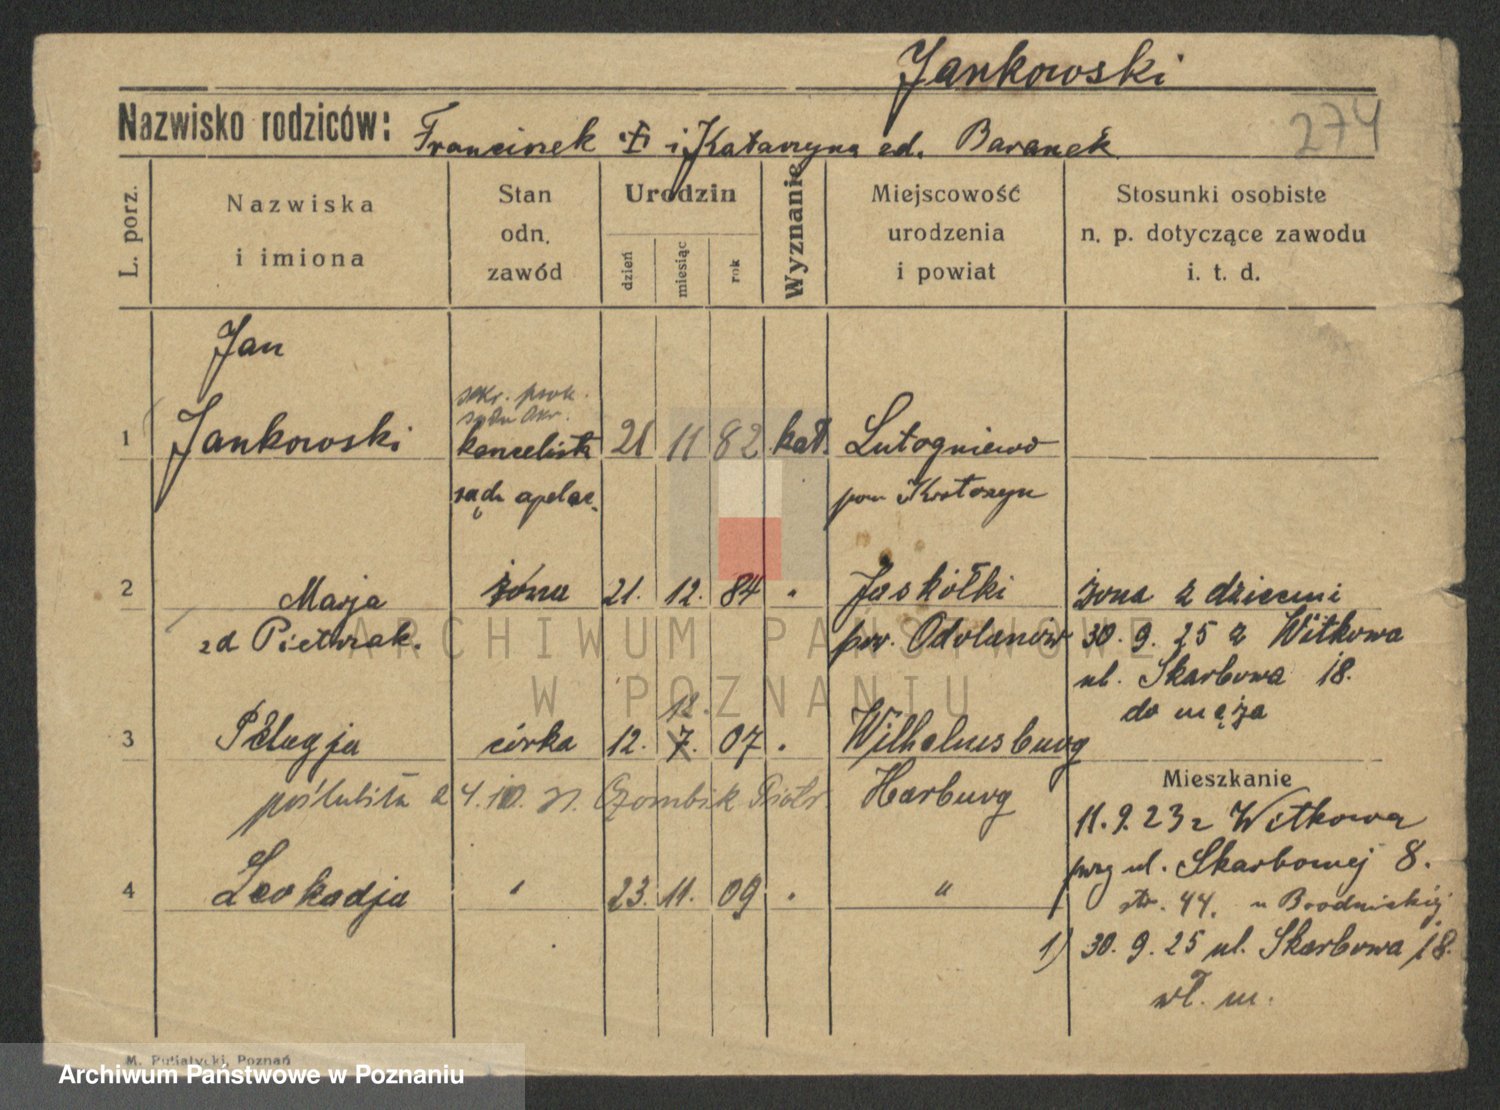 Jankowski
274
Nazwisko rodziców: Franciszek i Katarzyna zd. Baranek
L. porz.
Nazwiska
i imiona
Stan
odn.
zawód
Urodzin
dzień
miesiąc
rok
Wyznanie
Miejscowość
urodzenia
i powiat
Stosunki osobiste
n. p. dotyczące zawodu
i. t. d.
Jan
sekr. prok.
sądu Okr.
1 Jankowski kancelista 21 11 82 kat. Lutogniewo
sądu apelac. pow Krotoszyn
2 Marja żona 21. 12. 84 " Jaskółki żona z dziećmi
zd Pietrzak. pow. Odolanow 30. 9. 25 z Witkowa
ul. Skarbowa 18.
do męża
12.
3 Pelagja córka 12. 7. 07 " Wilhelmsburg
Mieszkanie
poślubiła 4. 10. Czombik Piotr Harburg
11. 9. 23 z Witkowa
przy ul. Skarbowej 8.
4 Leokadja " 23. 11. 09 " "
str. 44. u Brodnickiej
1) 30. 9. 25 ul. Skarbowa 18.
wł. m.
M. Putiatycki, Poznań
ARCHIWUM PAŃSTWOWE
W POZNANIU
Archiwum Państwowe w Poznaniu